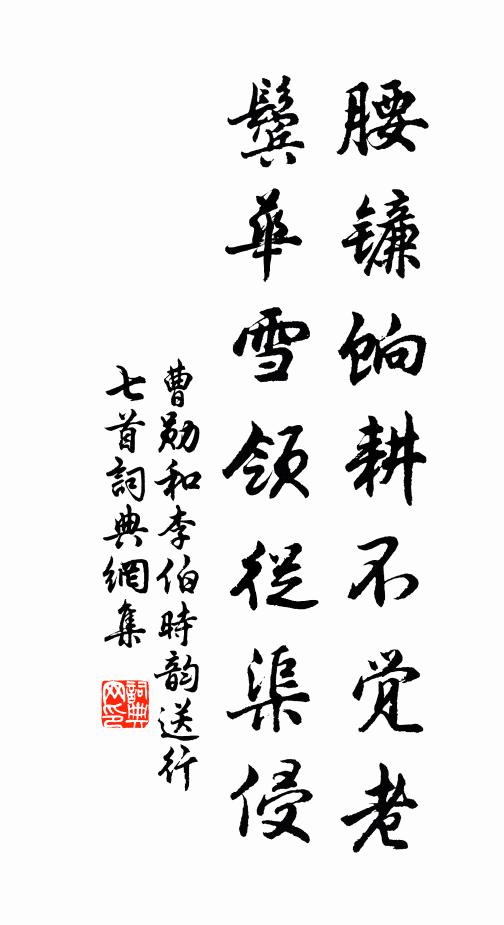 腰镰饷耕不觉老
鬓华雪领從渠侵
曹勋和李伯時韵送行
七首詞典網集
詞典网印